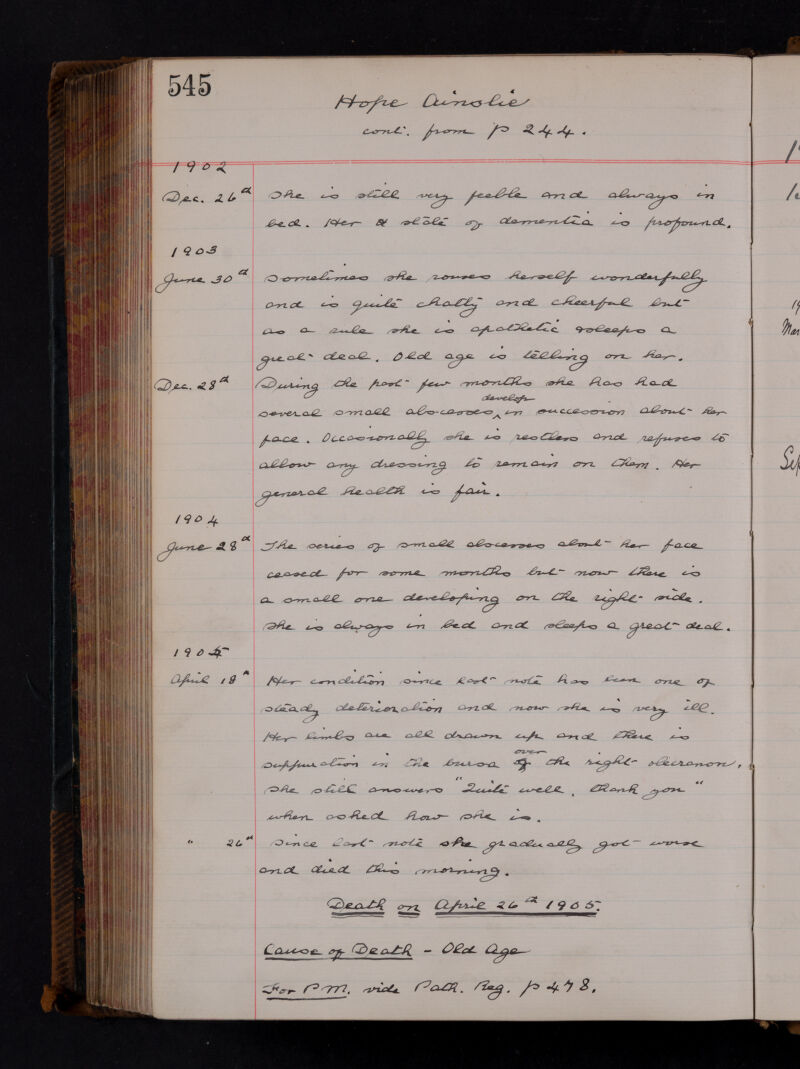 545
Hope Ainslie
cont. from p 244.
1902
Dec. 26th She is still very feeble and always in
bed. Her state of dementia is profound.
1903
June 30th Sometimes she rouses herself wonderfully
and is quite chatty and cheerful but
as a rule she is apathetic & sleeps a
great deal. Old age is telling on her.
Dec. 28th During the past few months she has had
develop
several small abscesses ^ in succession about her
face. Occasionally she is restless and refuses to
allow any dressing to remain on them. Her
general health is fair.
1904
June 28th The series of small abscesses about her face
ceased for some months but now there is
a small one developing on the right side.
She is always in bed and sleeps a great deal.
1905
April 18th Her condition since last note has been one of
steady deterioration and now she is very ill.
Her limbs are all drawn up and there is
over
suppuration in the bursa of the right olecranon.
She still answers "Quite well, thank you"
when asked how she is.
" 26th Since last note she gradually got worse
and died this morning.
Death on April 26th 1905.
Cause of Death - Old Age
For P.M. vide Path. Reg. p 478.